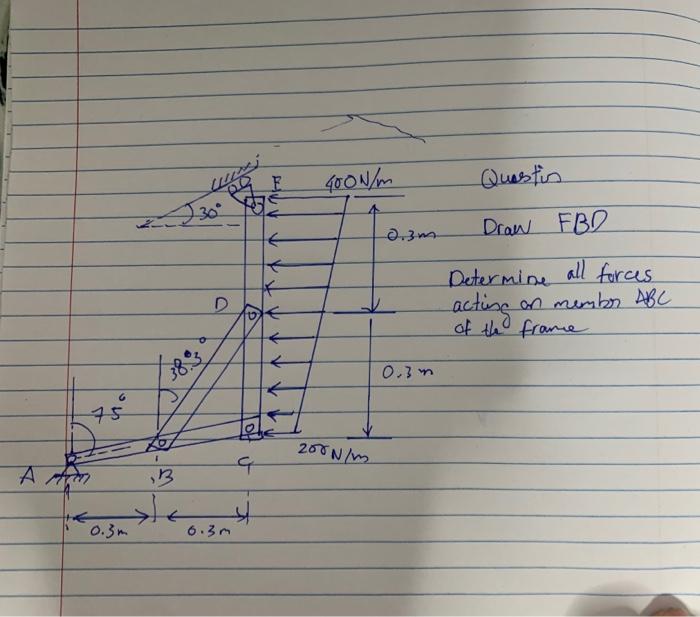 E
400N/m
30°
0.3m
D
38.3°
0.3m
75°
A
B
C
200N/m
0.3m
0.3m
Questin
Draw FBD
Determine all forces
acting on member ABC
of the frame